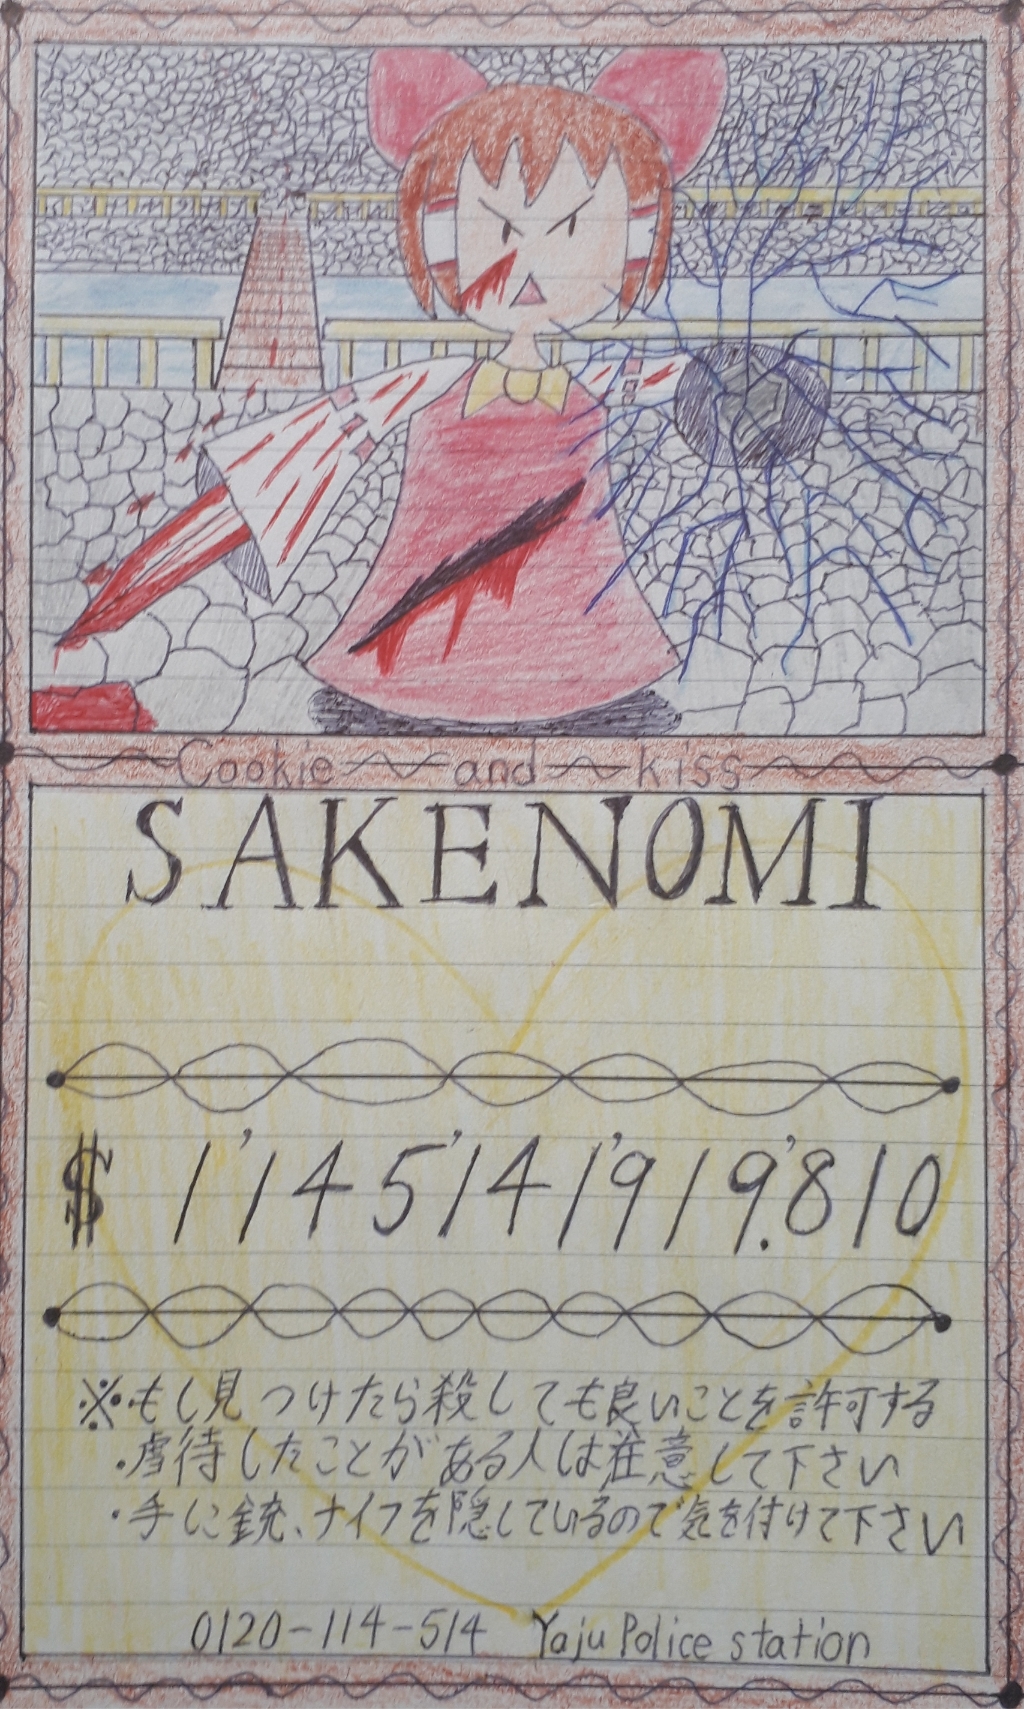 Cookie and kiss
SAKENOMI
$ 1'145'141'919.'810
※・もし見つけたら殺しても良いことを許可する
・虐待したことがある人は注意して下さい
・手に銃、ナイフを隠しているので気を付けて下さい
0120-114-514 Yaju Police station